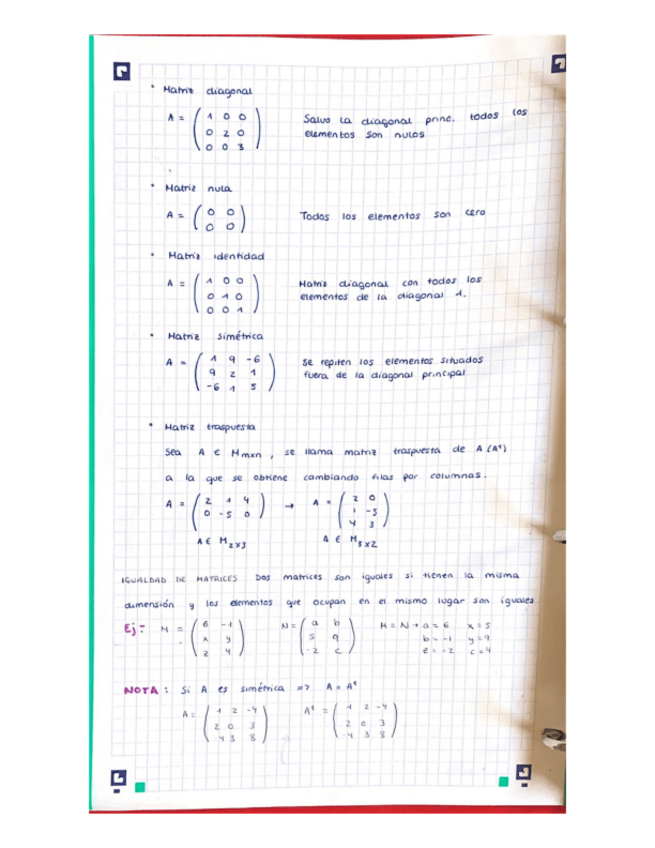 • Matriz diagonal
A = ( 1 0 0
0 2 0
0 0 3 )
Salvo la diagonal princ. todos los
elementos son nulos
• Matriz nula
A = ( 0 0
0 0 )
Todos los elementos son cero
• Matriz identidad
A = ( 1 0 0
0 1 0
0 0 1 )
Matriz diagonal con todos los
elementos de la diagonal 1.
• Matriz simétrica
A = ( 1 9 -6
9 2 1
-6 1 5 )
Se repiten los elementos situados
fuera de la diagonal principal
• Matriz traspuesta
Sea A ∈ Mmxn, se llama matriz traspuesta de A (Aᵗ)
a la que se obtiene cambiando filas por columnas.
A = ( 2 1 4
0 -5 0 ) → A = ( 2 0
1 -5
4 3 )
A ∈ M2x3 A ∈ M3x2
IGUALDAD DE MATRICES Dos matrices son iguales si tienen la misma
dimensión y los elementos que ocupan en el mismo lugar son iguales
Ej: M = ( 6 -1
x y
z 4 )
N = ( a b
5 9
-2 c )
M = N → a = 6 x = 5
b = -1 y = 9
z = -2 c = 4
NOTA: Si A es simétrica => A = Aᵗ
A = ( 1 2 -4
2 0 3
-4 3 8 )
Aᵗ = ( 1 2 -4
2 0 3
-4 3 8 )